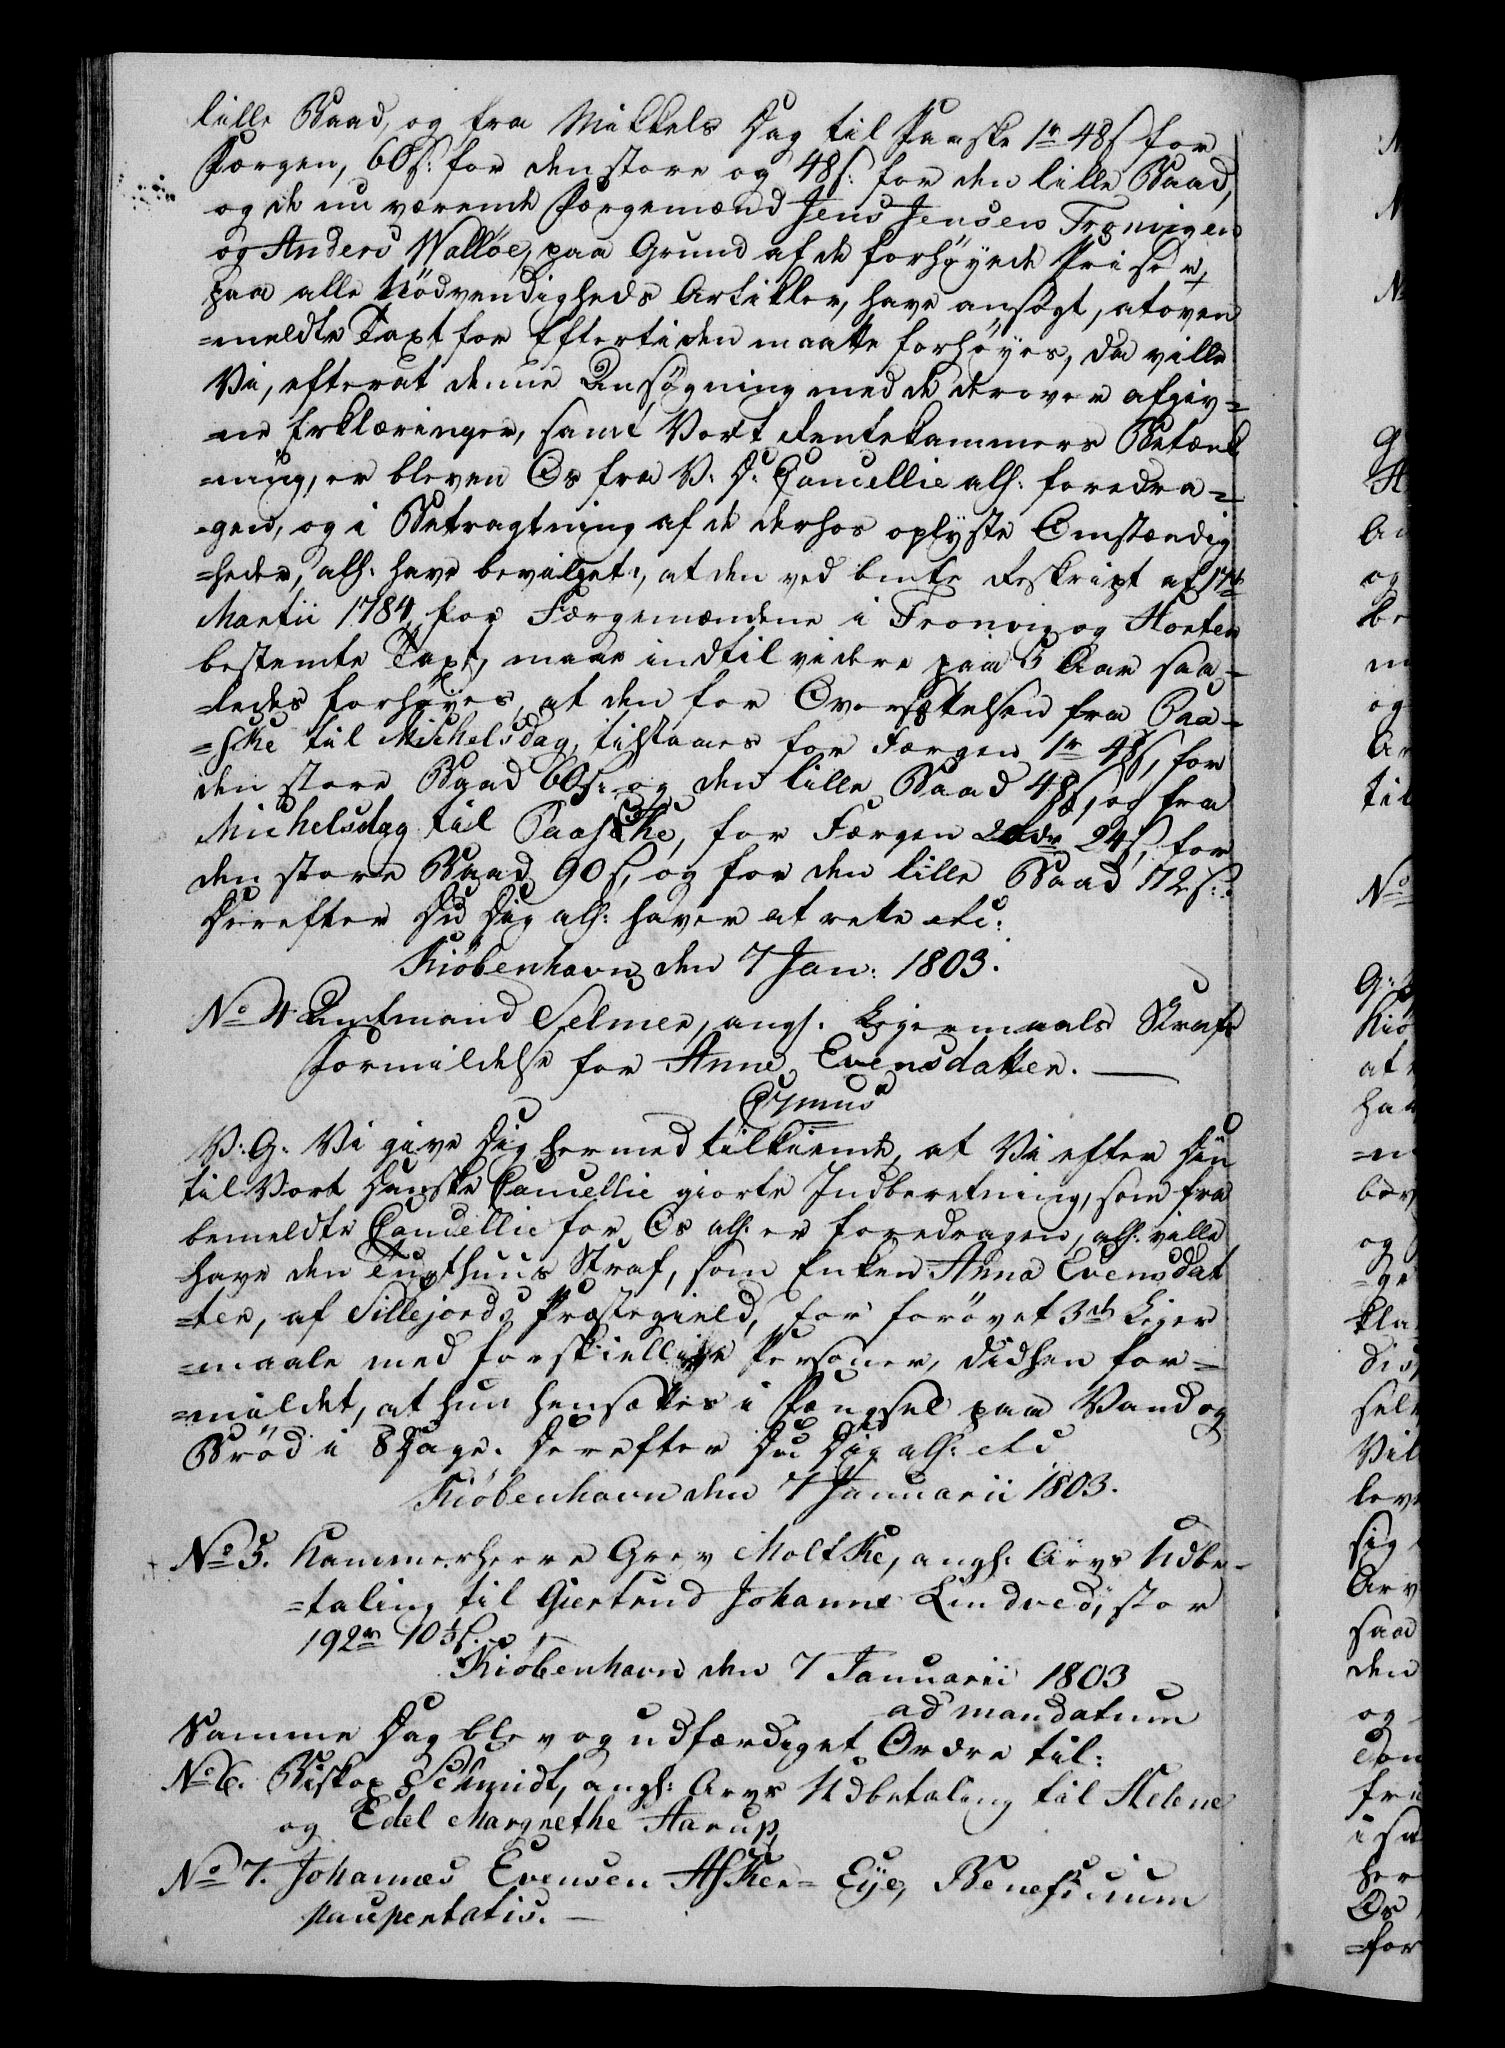 lille Baad, og fra Mikkels Dag til Paaske 1r 48s for
Færgen, 60s: for den store og 48s: for den lille Baad,
og de nu værende Færgemænd Jens Jensen Tronvigen
og Anders Walløe, paa Grund af de forhøyede Priser,
paa alle Nødvendigheds Artikler, have ansøgt, at oven
=meldte Taxt for Eftertiden maatte forhøyes, da ville
Vi, efterat denne Ansøgning med de derover afgiv=
=ne Erklæringer, samt Vort Rentekammers Betænk
=ning, er bleven Os fra V: D: Cancellie alh: foredra=
=gen, og i Betragtning af de derhos oplyste Omstændig
=heder, alh: have bevilget, at den ved bmte Reskript af 17de
Martii 1784 for Færgemændene i Tronvig og Horten
bestemte Taxt, maae indtil videre paa 5 Aar saa=
=ledes forhøyes, at den for Oversættelsen fra Paa=
=ske til Michelsdag, tilstaaes for Færgen 1r 48s, for
den store Baad 60s: og den lille Baad 48s, og fra
Michelsdag til Paaske, for Færgen 2rdr 24s, for
den store Baad 90s, og for den lille Baad 72s:.
Derefter Du Dig alh: haver at rette etc:
Kiøbenhavn den 7 Jan: 1803.
No 4 Amtmand Selmer, angh: Leiermaals Straf
Formildelse for Anne Evensdatter. —
C7mus
V: G: Vi give Dig hermed tilkiende, at Vi efter Din
til Vort Danske Cancellie giorte Indberetning, som fra
bemeldte Cancellie for Os alh: er foredragen, alh: ville
have den Tugthuus Straf, som Enken Anna Evensdat
=ter, af Sillejords Præstegield, for forøvet 3de Leier
=maale med forskiellige Personer, didhen for=
=mildet, at hun hensættes i Fængsel paa Vand og
Brød i 8 Dage. Derefter Du Dig alh: etc
Kiøbenhavn den 7 Januarii 1803.
No 5. Kammerherre Grev Moltke, angh: Arvs Udbe=
=taling til Giertrud Johanne Lindved, stor
192r 10½s.
Kiøbenhavn den 7 Januarii 1803
ad mandatum
Samme Dag blev og udfærdiget Ordre til:
No 6. Biskop Schmidt, angh: Arvs Udbetaling til Helene
og Edel Margrethe Aarup,
No 7. Johannes Evensen Asker= Eye, Beneficium
paupertatis. —